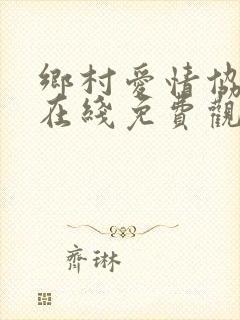 鄉村愛情協
在綫免費觀
齊琳